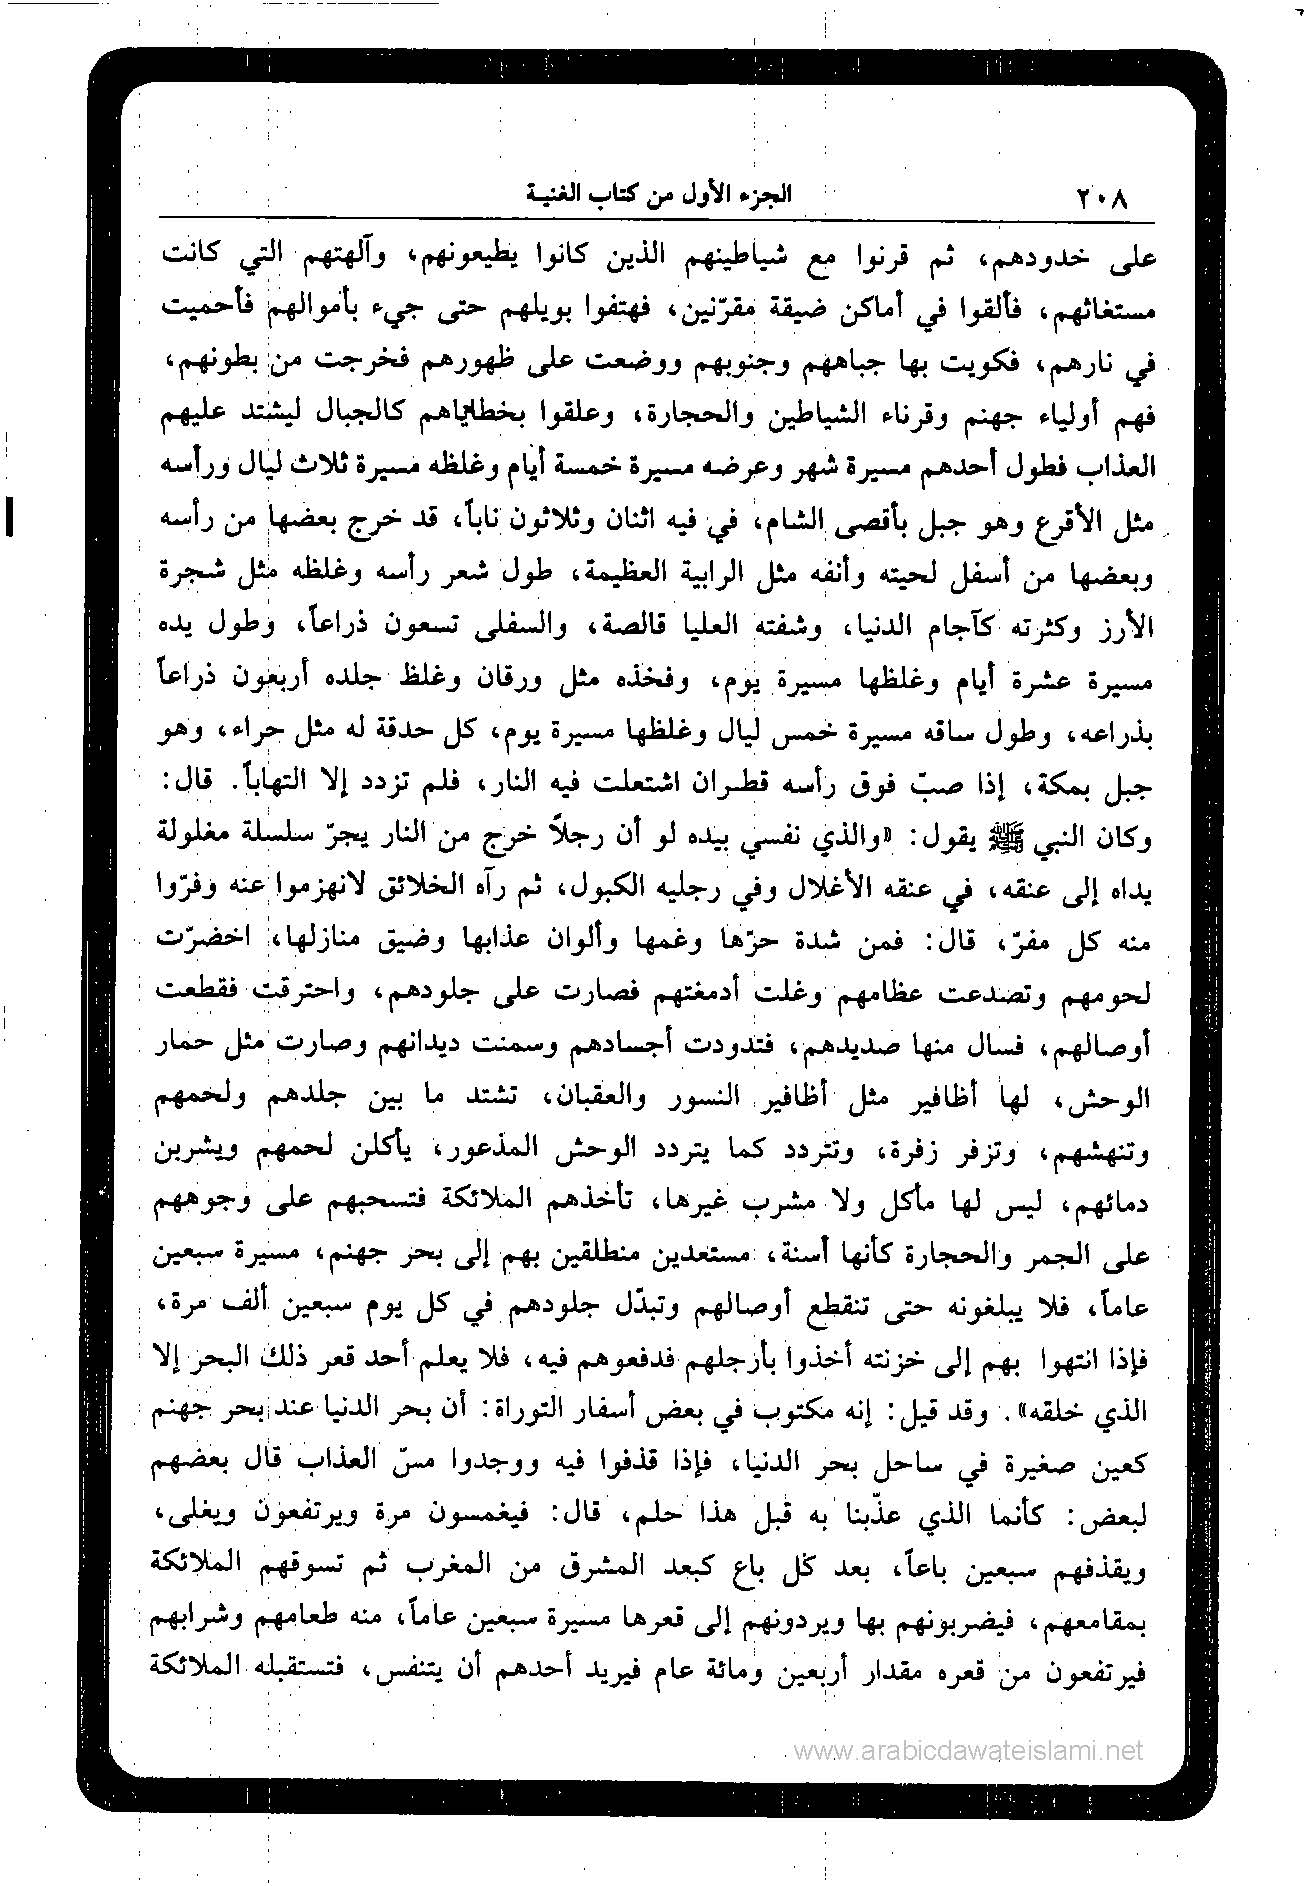 ٢٠٨ الجزء الأول من كتاب الغنية
على خدودهم، ثم قرنوا مع شياطينهم الذين كانوا يطيعونهم، وآلهتهم التي كانت
مستغاثهم، فألقوا في أماكن ضيقة مقرّنين، فهتفوا بويلهم حتى جيء بأموالهم فأحميت
في نارهم، فكويت بها جباههم وجنوبهم ووضعت على ظهورهم فخرجت من بطونهم،
فهم أولياء جهنم وقرناء الشياطين والحجارة، وعلقوا بخطاياهم كالجبال ليشتد عليهم
العذاب فطول أحدهم مسيرة شهر وعرضه مسيرة خمسة أيام وغلظه مسيرة ثلاث ليال ورأسه
مثل الأقرع وهو جبل بأقصى الشام، في فيه اثنان وثلاثون ناباً، قد خرج بعضها من رأسه
وبعضها من أسفل لحيته وأنفه مثل الرابية العظيمة، طول شعر رأسه وغلظه مثل شجرة
الأرز وكثرته كآجام الدنيا، وشفته العليا قالصة، والسفلى تسعون ذراعاً، وطول يده
مسيرة عشرة أيام وغلظها مسيرة يوم، وفخذه مثل ورقان وغلظ جلده أربعون ذراعاً
بذراعه، وطول ساقه مسيرة خمس ليال وغلظها مسيرة يوم، كل حدقة له مثل حراء، وهو
جبل بمكة، إذا صبّ فوق رأسه قطران اشتعلت فيه النار، فلم تزدد إلا التهاباً. قال:
وكان النبي ﷺ يقول: «والذي نفسي بيده لو أن رجلاً خرج من النار يجرّ سلسلة مغلولة
يداه إلى عنقه، في عنقه الأغلال وفي رجليه الكبول، ثم رآه الخلائق لانهزموا عنه وفرّوا
منه كل مفرّ، قال: فمن شدة حرّها وغمها وألوان عذابها وضيق منازلها، اخضرّت
لحومهم وتصدعت عظامهم وغلت أدمغتهم فصارت على جلودهم، واحترقت فقطعت
أوصالهم، فسال منها صديدهم، فتدودت أجسادهم وسمنت ديدانهم وصارت مثل حمار
الوحش، لها أظافير مثل أظافير النسور والعقبان، تشتد ما بين جلدهم ولحمهم
وتنهشهم، وتزفر زفرة، وتتردد كما يتردد الوحش المذعور، يأكلن لحمهم ويشربن
دمائهم، ليس لها مأكل ولا مشرب غيرها، تأخذهم الملائكة فتسحبهم على وجوههم
على الجمر والحجارة كأنها أسنة، مستعدين منطلقين بهم إلى بحر جهنم، مسيرة سبعين
عاماً، فلا يبلغونه حتى تنقطع أوصالهم وتبدّل جلودهم في كل يوم سبعين ألف مرة،
فإذا انتهوا بهم إلى خزنته أخذوا بأرجلهم فدفعوهم فيه، فلا يعلم أحد قعر ذلك البحر إلا
الذي خلقه». وقد قيل: إنه مكتوب في بعض أسفار التوراة: أن بحر الدنيا عند بحر جهنم
كعين صغيرة في ساحل بحر الدنيا، فإذا قذفوا فيه ووجدوا مسّ العذاب قال بعضهم
لبعض: كأنما الذي عذّبنا به قبل هذا حلم، قال: فيغمسون مرة ويرتفعون ويغلى،
ويقذفهم سبعين باعاً، بعد كل باع كبعد المشرق من المغرب ثم تسوقهم الملائكة
بمقامعهم، فيضربونهم بها ويردونهم إلى قعرها مسيرة سبعين عاماً، منه طعامهم وشرابهم
فيرتفعون من قعره مقدار أربعين ومائة عام فيريد أحدهم أن يتنفس، فتستقبله الملائكة
www.arabicdawateislami.net